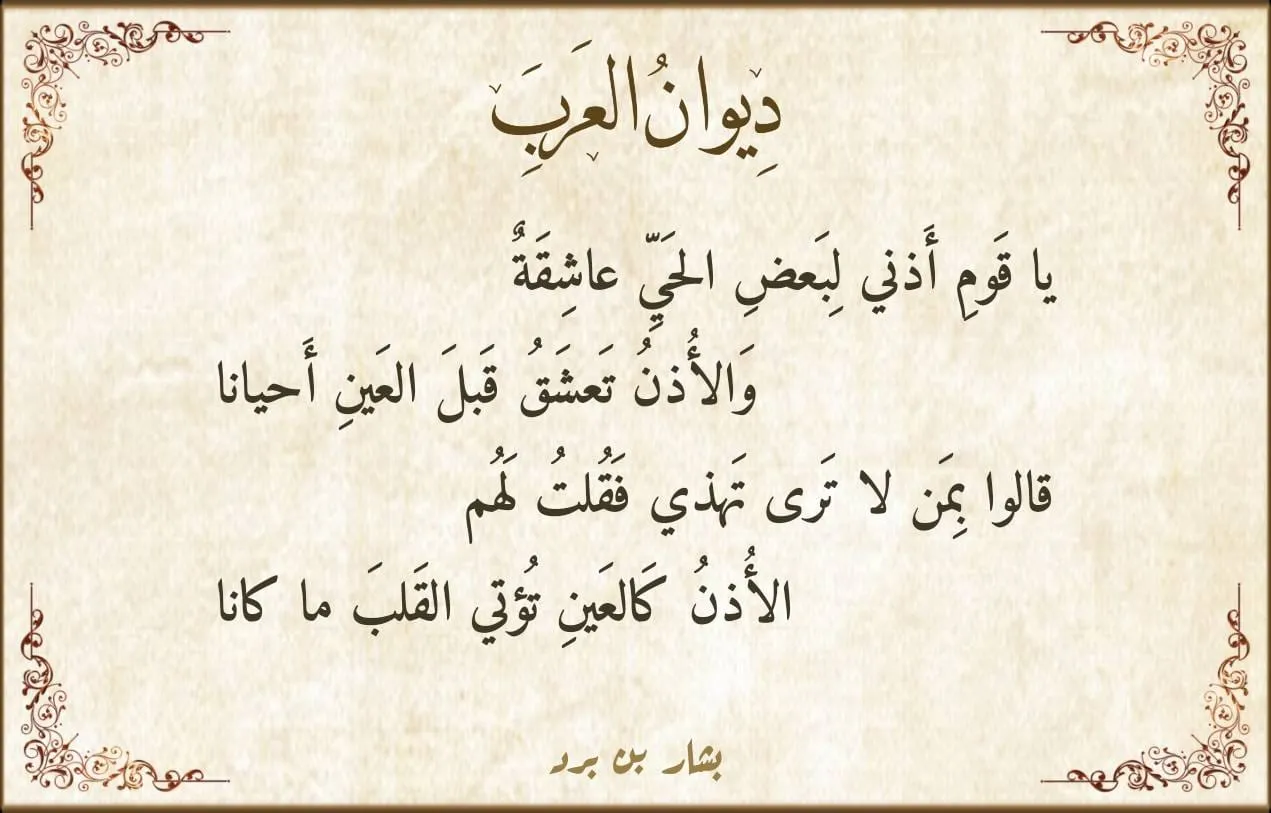 دِيوانُ العَرَبِ
يا قَومِ أَذني لِبَعضِ الحَيِّ عاشِقَةٌ
وَالأُذنُ تَعشَقُ قَبلَ العَينِ أَحيانا
قالوا بِمَن لا تَرى تَهذي فَقُلتُ لَهُم
الأُذنُ كَالعَينِ تُؤتي القَلبَ ما كانا
بشار بن برد